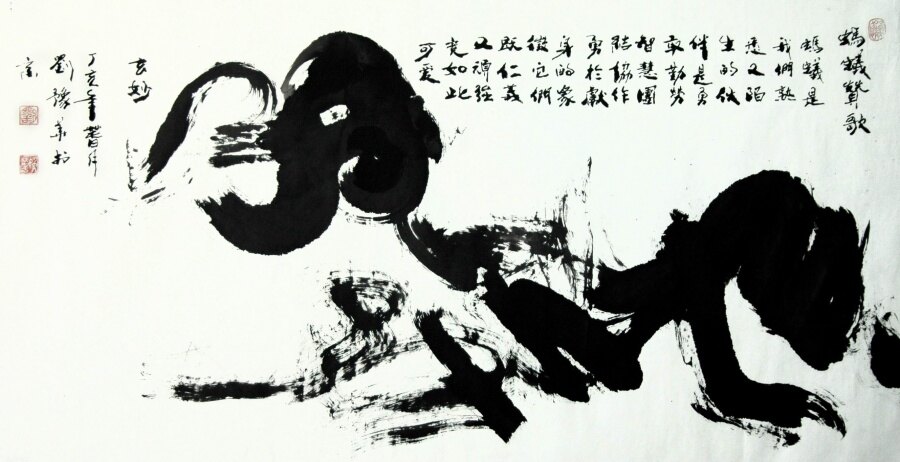 螞蟻贊歌
螞蟻是
我們熟
悉又陌
生的伙
伴是勇
敢勤勞
智慧團
結協作
勇於獻
身的象
徵它們
既仁義
又强
如此
可愛
玄妙
丁亥年
劉豫